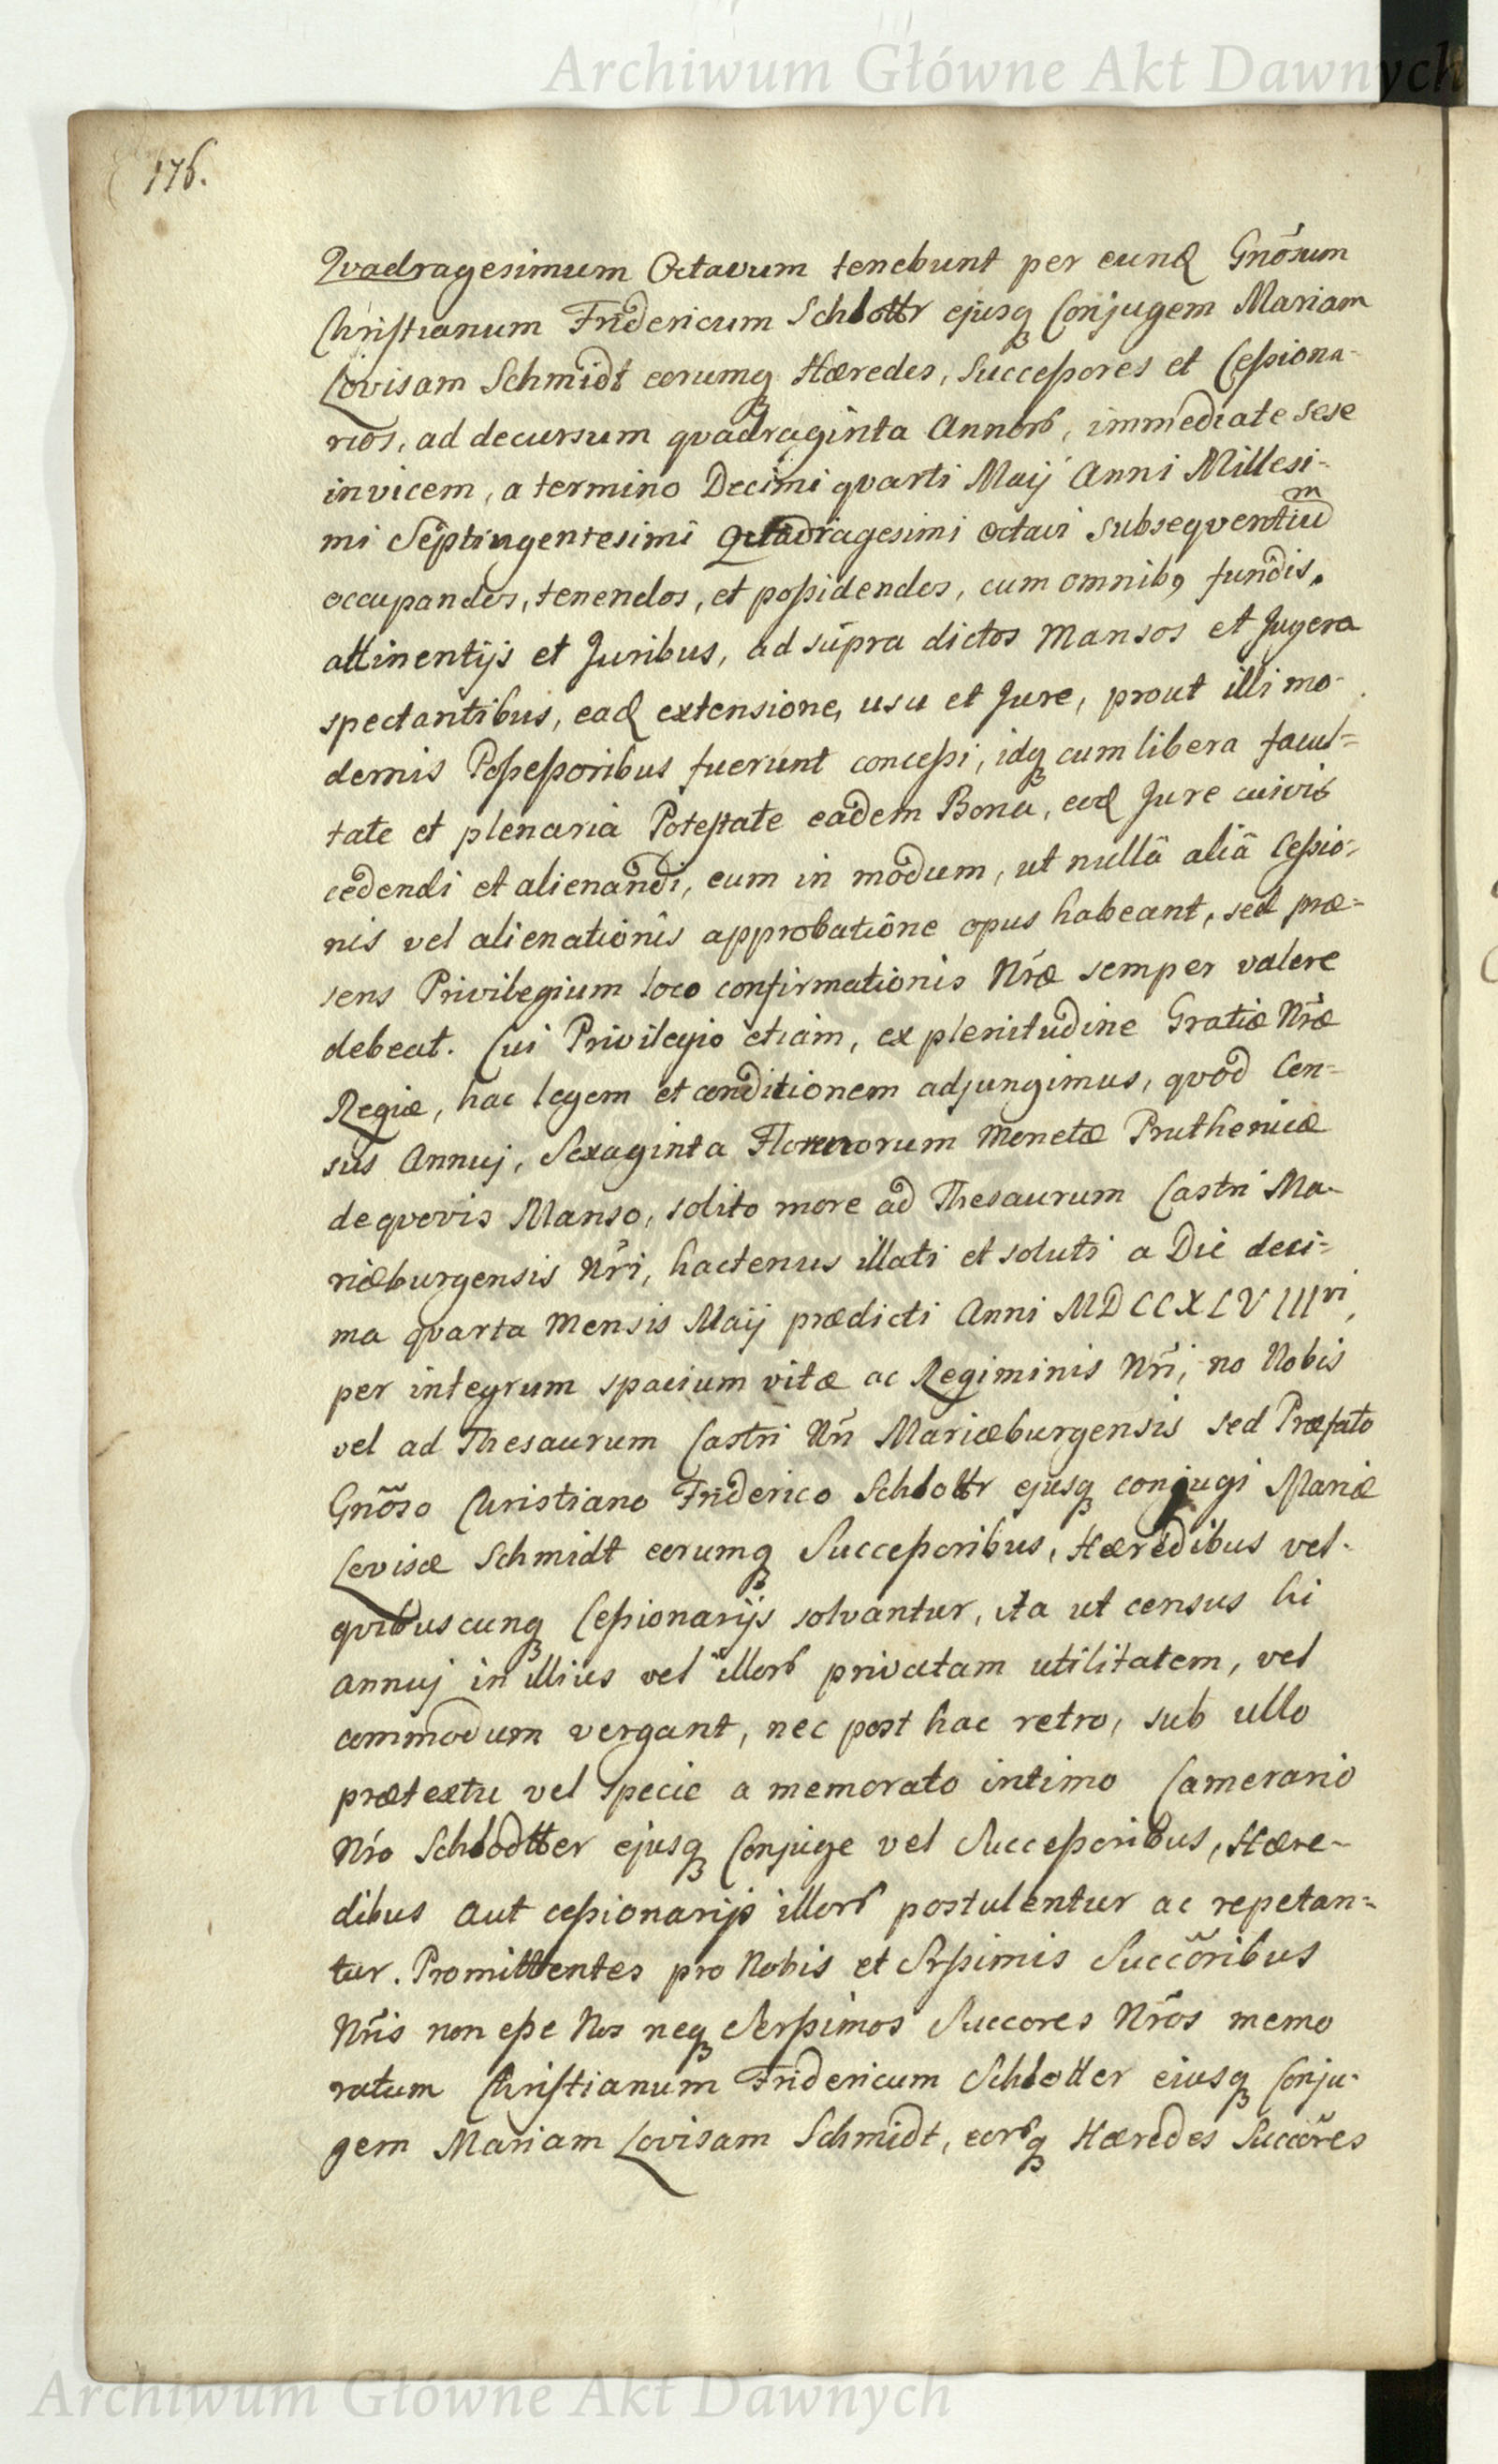 Archiwum Główne Akt Dawnych
176.
Qvadragesimum Octavum tenebunt per eund Gnõsum
Christianum Fridericum Schlottr ejusq Conjugem Mariam
Lovisam Schmidt eorumq Hæredes, Successores et Cessiona-
rios, ad decursum qvadraginta Annorũ, immediate sese
invicem, a termino Decimi qvarti Maij Anni Millesi-
mi Septingentesimi Qvadragesimi octavi subseqventiũm
occupandos, tenendos, et possidendos, cum omnibq fundis,
attinentijs et Juribus, ad supra dictos Mansos et Jugera
spectantibus, ead extensione, usu et Jure, prout illi mo-
dernis Possessoribus fuerunt concessi, idq cum libera facul=
tate et plenaria Potestate eadem Bona, eod Jure cuivis
cedendi et alienandi, eum in modum, ut nullâ aliâ Cessio-
nis vel alienationis approbatione opus habeant, sed præ=
sens Privilegium loco confirmationis Nr̃æ semper valere
debeat. Cui Privilegio etiam, ex plenitudine Gratiæ Nr̃æ
Regiæ, hac legem et conditionem adjungimus, qvod Cen=
sus Annuj, Sexaginta Florenorum Monetæ Pruthenicæ
de qvovis Manso, solito more ad Thesaurum Castri Ma-
riæburgensis Nr̃i, hactenus illati et soluti a Die deci=
ma qvarta Mensis Maij prædicti Anni MDCCXLVIIIvi,
per integrum spacium vitæ ac Regiminis Nr̃i, no Nobis
vel ad Thesaurum Castri Nr̃i Mariæburgensis sed Præfato
Gnõso Christiano Friderico Schlottr ejusq conjugi Mariæ
Lovisæ Schmidt eorumq Successoribus, Hæredibus vel
qvibuscunq Cessionarijs solvantur, ita ut census hi
annuj in illius vel illorũ privatam utilitatem, vel
commodum vergant, nec post hac retro, sub ullo
prætextu vel specie a memorato intimo Camerario
Nr̃o Schlodtter ejusq Conjuge vel Successoribus, Hære-
dibus aut cessionarijs illorũ postulentur ac repetan=
tur. Promittentes pro Nobis et Srssimis Succõribus
Nr̃is non esse Nos neq Serssimos Succores Nr̃os memo
ratum Christianum Fridericum Schlotter eiusq Conju-
gem Mariam Lovisam Schmidt, eorũq Hæredes Succõres
Archiwum Główne Akt Dawnych